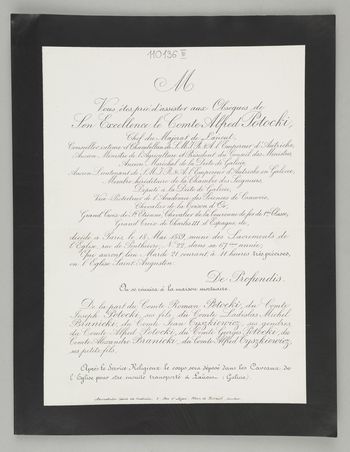 110136 III
M
Vous êtes prié d'assister aux Obsèques de
Son Excellence le Comte Alfred Potocki,
Chef du Majorat de Lancut,
Conseiller intime et Chambellan de S.M.I.R.&A. l'Empereur d'Autriche,
Ancien Ministre de l'Agriculture et Président du Conseil des Ministres,
Ancien Maréchal de la Diète de Galicie,
Ancien Lieutenant de S.M.I.R.&A. l'Empereur d'Autriche en Galicie,
Membre héréditaire de la Chambre des Seigneurs,
Député à la Diète de Galicie,
Vice-Protecteur de l'Académie des Sciences de Cracovie,
Chevalier de la Toison d'Or,
Grand Croix de St Etienne, Chevalier de la Couronne de fer de 1re Classe,
Grand Croix de Charles III d'Espagne, &a,
décédé à Paris, le 18 Mai 1889, muni des Sacrements de
l'Eglise, rue de Penthièvre, No 22, dans sa 67me année;
Qui auront lieu Mardi 21 courant, à 11 heures très précises,
en l'Eglise Saint Augustin.
De Profundis.
On se réunira à la maison mortuaire.
De la part du Comte Roman Potocki, du Comte
Joseph Potocki, ses fils, du Comte Ladislas Michel
Branicki, du Comte Jean Tyszkiewicz, ses gendres,
du Comte Alfred Potocki, du Comte Georges Potocki, du
Comte Alexandre Branicki, du Comte Alfred Tyszkiewicz,
ses petits-fils.
Après le Service Religieux, le corps sera déposé dans les Caveaux de
l'Eglise pour être ensuite transporté à Lancut. (Galicie.)